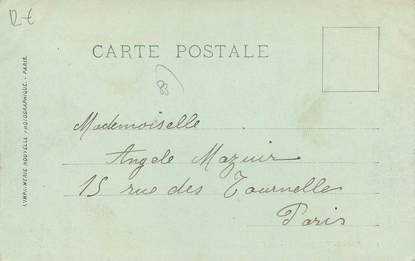 12 €
CARTE POSTALE
83
Mademoiselle
Angele Mazuir
15 rue des Tournelle
Paris
IMPRIMERIE NOUVELLE PHOTOGRAPHIQUE. - PARIS.